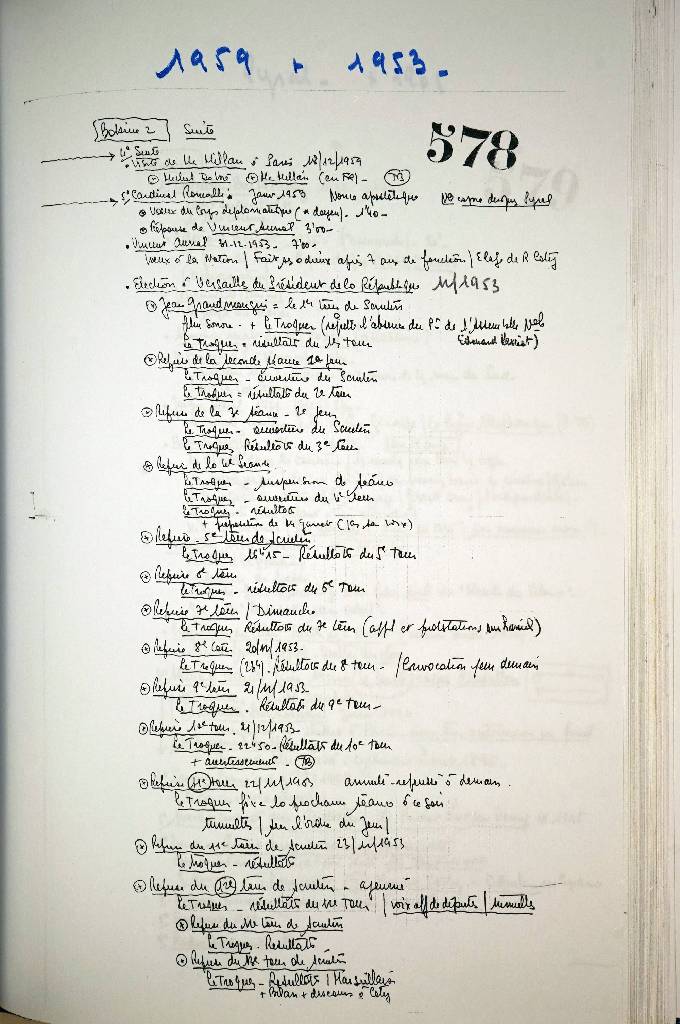 1959 + 1953.
578
Bobine 2 Suite
4° Suite
Visite de Mc Millan à Paris 18/12/1959
Michel Debré Mc Millan (en FR) - TB
5° Cardinal Roncalli: Janv 1953 Nonce apostolique
Vœux du Corps diplomatique ( doyen). 1'40-
Réponse de Vincent Auriol 3'00-
Vincent Auriol 31-12-1953. 7'00-
Vœux à la Nation / Fait ses adieux après 7 ans de fonction / Eloge de R Coty
Election à Versailles du Président de la République 12/1953
Jean Grandmougin = le 1er tour de Scrutin
film sonore - + Le Troquer (regrette l'absence du Pt de l'Assemblée Nale
Edouard Herriot)
Le Troquer = résultats du 1er tour
Reprise de la seconde séance 1er jour
Le Troquer - ouverture du Scrutin
Le Troquer = résultats du 2e tour
Reprise de la 3e séance - 2e jour
Le Troquer - ouverture du Scrutin
Le Troquer Résultats du 3e tour
Reprise de la 4e Séance
Le Troquer - suspension de séance
Le Troquer - ouverture du 4e tour
Le Troquer - résultats
+ proposition de
Reprise - 5e tour de scrutin
Le Troquer 15h15 - Résultats du 5e tour
Reprise 6e tour
Le Troquer - résultats du 6e tour
Reprise 7e tour / Dimanche
Le Troquer Résultats du 7e tour (appl et protestations sur Laniel)
Reprise 8e tour 20/12/1953-
Le Troquer (234). Résultats du 8e tour - / Convocation pour demain
Reprise 9e tour 21/12/1953-
Le Troquer. Résultats du 9e tour -
Reprise 10e tour. 21/12/1953-
Le Troquer - 22h50 - Résultats du 10e tour
+ avertissement - TB
Reprise 11e tour 22/12/1953 annulé - repoussé à demain.
Le Troquer fixe la prochaine séance à ce soir
tumultes / sur l'ordre du Jour /
Reprise du 11e tour de scrutin 23/12/1953
Le Troquer - résultats
Reprise du 12e tour de scrutin - ajourné
Le Troquer - résultats du tour / voix off de députés / tumultes
Reprise du tour de scrutin
Le Troquer. Résultats
Reprise du 13e tour de scrutin
Le Troquer - Résultats / Marseillaise
+ Bilan + discours à Coty